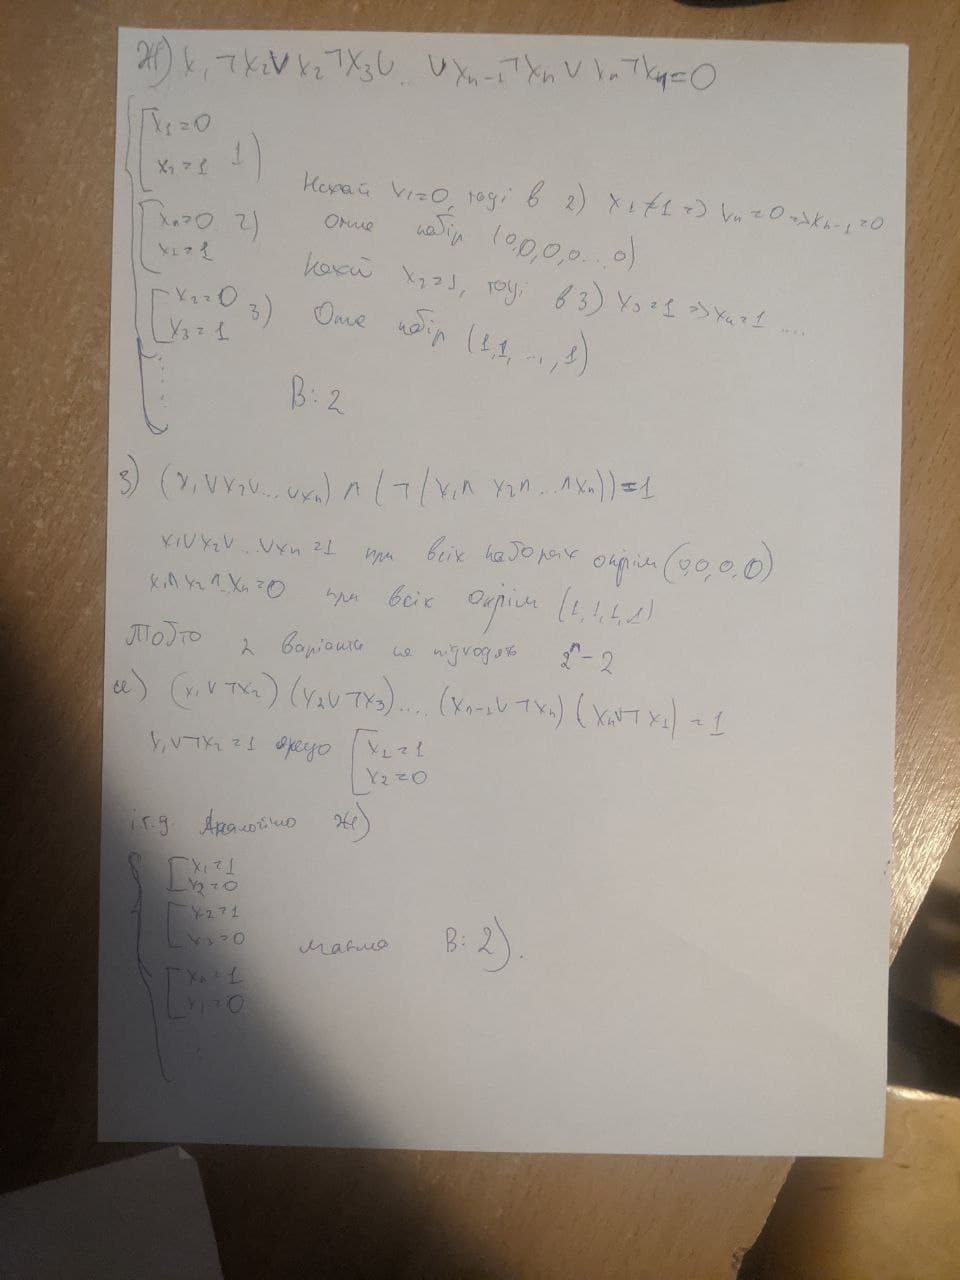 Ж) x₁¬x₂∨x₂¬x₃∨.. ∨xₙ₋₁¬xₙ∨xₙ¬x₁=0
x₁=0
x₂=1 1)
Нехай x₁=0, тоді в 2) x₁≠1=>xₙ=0=>xₙ₋₁=0
xₙ=0 2)
x₁=1
Отже набір (0,0,0,0...0)
Нехай x₂=1, тоді в 3) x₃=1=>x₄=1 ....
x₂=0 3)
x₃=1
Отже набір (1,1,...,1)
В: 2
з) (x₁∨x₂∨...∨xₙ)∧(¬(x₁∧x₂∧...∧xₙ))=1
x₁∨x₂∨..∨xₙ=1 при всіх наборах окрім (0,0,0,0)
x₁∧x₂∧..xₙ=0 при всіх окрім (1,1,1,1)
Тобто 2 варіанти не підходять 2ⁿ-2
(x₁∨¬x₂)(x₂∨¬x₃)....(xₙ₋₁∨¬xₙ)(xₙ∨¬x₁)=1
x₁∨¬x₂=1 якщо
x₁=1
x₂=0
і т.д. Аналогічно Ж)
x₁=1
x₂=0
x₂=1
x₃=0
В: 2).
xₙ=1
x₁=0